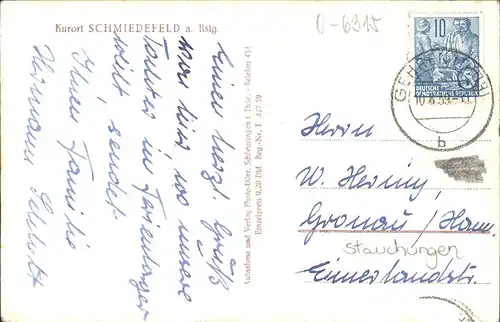 Kurort SCHMIEDEFELD a. Rstg.
0-6315
10
DEUTSCHE
DEMOKRATISCHE REPUBLIK
GEHREN (THÜR)
b
Einen herzl. Gruß
von hier wo unsere
Tochter im Ferienlager
weilt, sendet
Ihnen Familie
Hermann
Aufnahme und Verlag Photo-Dörr, Schleusingen i. Thür. - Telefon 434
Einzelpreis 0.20 DM Beg.-Nr. I 347/59
Herrn
W. Hering,
Gronau / Hann.
Stauchungen
Eimerlandstr.